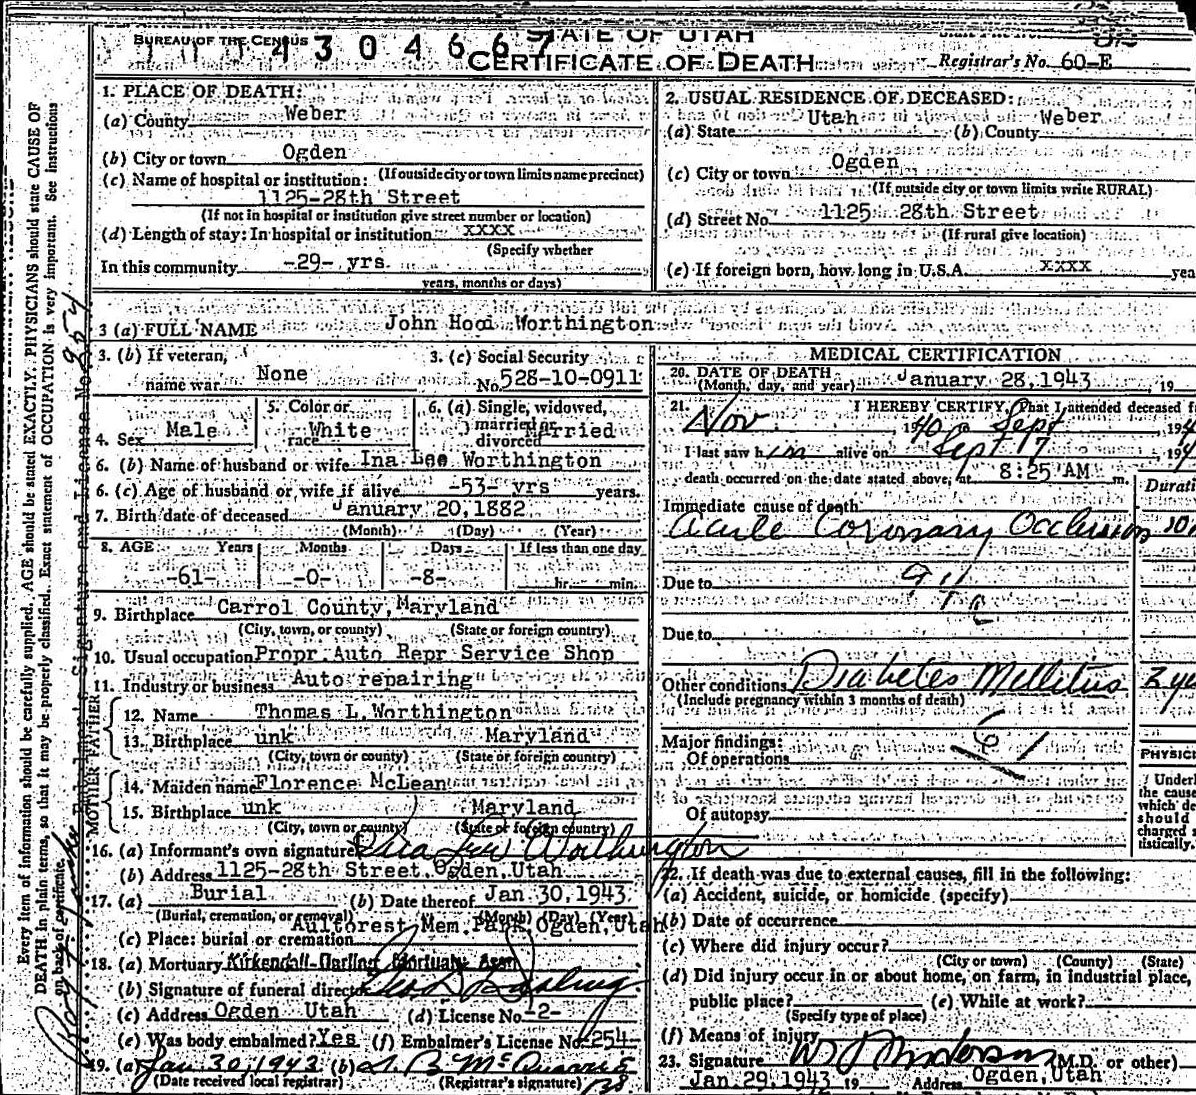 BUREAU OF THE CENSUS
4 3 0 4 6 6 7
STATE OF UTAH
CERTIFICATE OF DEATH
Registrar's No. 60-E
1. PLACE OF DEATH:
(a) County Weber
(b) City or town Ogden
(If outside city or town limits name precinct)
(c) Name of hospital or institution:
1125-28th Street
(If not in hospital or institution give street number or location)
(d) Length of stay: In hospital or institution xxxx
(Specify whether
In this community -29- yrs
years, months or days)
2. USUAL RESIDENCE OF DECEASED:
(a) State Utah (b) County Weber
(c) City or town Ogden
(If outside city or town limits write RURAL)
(d) Street No. 1125 28th Street
(If rural give location)
(e) If foreign born, how long in U.S.A. xxxx yea
3 (a) FULL NAME John Hood Worthington
3. (b) If veteran,
name war None
3. (c) Social Security
No. 528-10-0911
4. Sex Male
5. Color or
race White
6. (a) Single, widowed,
married or
divorced
6. (b) Name of husband or wife Ina Lee Worthington
6. (c) Age of husband or wife if alive -53- yrs years.
7. Birth date of deceased January 20, 1882
(Month) (Day) (Year)
8. AGE Years Months Days If less than one day
-61- -0- -8- hr. min.
9. Birthplace Carrol County, Maryland
(City, town, or county) (State or foreign country)
10. Usual occupation Propr. Auto Repr Service Shop
11. Industry or business Auto repairing
FATHER
12. Name Thomas L. Worthington
13. Birthplace unk Maryland
(City, town, or county) (State or foreign country)
MOTHER
14. Maiden name Florence McLean
15. Birthplace unk Maryland
(City, town or county) (State or foreign country)
16. (a) Informant's own signature Ina Lee Worthington
(b) Address 1125-28th Street, Ogden, Utah
17. (a) Burial (b) Date thereof Jan 30, 1943
(Burial, cremation, or removal) (Month) (Day) (Year)
Aultorest Mem. Park, Ogden, Utah
(c) Place: burial or cremation
18. (a) Mortuary Kirkendall-Darling Mortuary
(b) Signature of funeral director
(c) Address Ogden Utah (d) License No. -2-
(e) Was body embalmed? Yes (f) Embalmer's License No. 254-
19. (a) Jan 30, 1943 (b)
(Date received local registrar) (Registrar's signature)
MEDICAL CERTIFICATION
20. DATE OF DEATH
(Month, day, and year) January 28, 1943 19
21. I HEREBY CERTIFY, That I attended deceased f
Nov 1940 to Sept , 194
I last saw him alive on Sept 17 , 194
death occurred on the date stated above, at 8:25 AM m.
Durati
Immediate cause of death
Acute Coronary Occlusion
Due to
Due to
Other conditions Diabetes Mellitus
(Include pregnancy within 3 months of death)
Major findings:
Of operations
Of autopsy
PHYSIC
Underl
the cause
which de
should
charged s
tistically.
22. If death was due to external causes, fill in the following:
(a) Accident, suicide, or homicide (specify)
(b) Date of occurrence
(c) Where did injury occur?
(City or town) (County) (State)
(d) Did injury occur in or about home, on farm, in industrial place,
public place? (e) While at work?
(Specify type of place)
(f) Means of injury
23. Signature (M.D. or other)
Jan. 29, 1943 19 Address Ogden, Utah
Every item of information should be carefully supplied. AGE should be stated EXACTLY. PHYSICIANS should state CAUSE OF
DEATH in plain terms, so that it may be properly classified. Exact statement of OCCUPATION is very important. See instructions
on back of certificate.